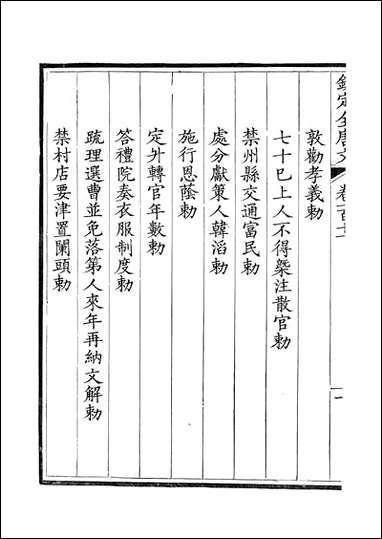 欽定全唐文 卷一百十二
敦勸孝義勅
七十巳上人不得槩注散官勅
禁州縣交通富民勅
處分獻策人韓滔勅
施行恩蔭勅
定外轉官年數勅
答禮院奏衣服制度勅
疏理選曹並免落第人來年再納文解勅
禁村店要津置闌頭勅